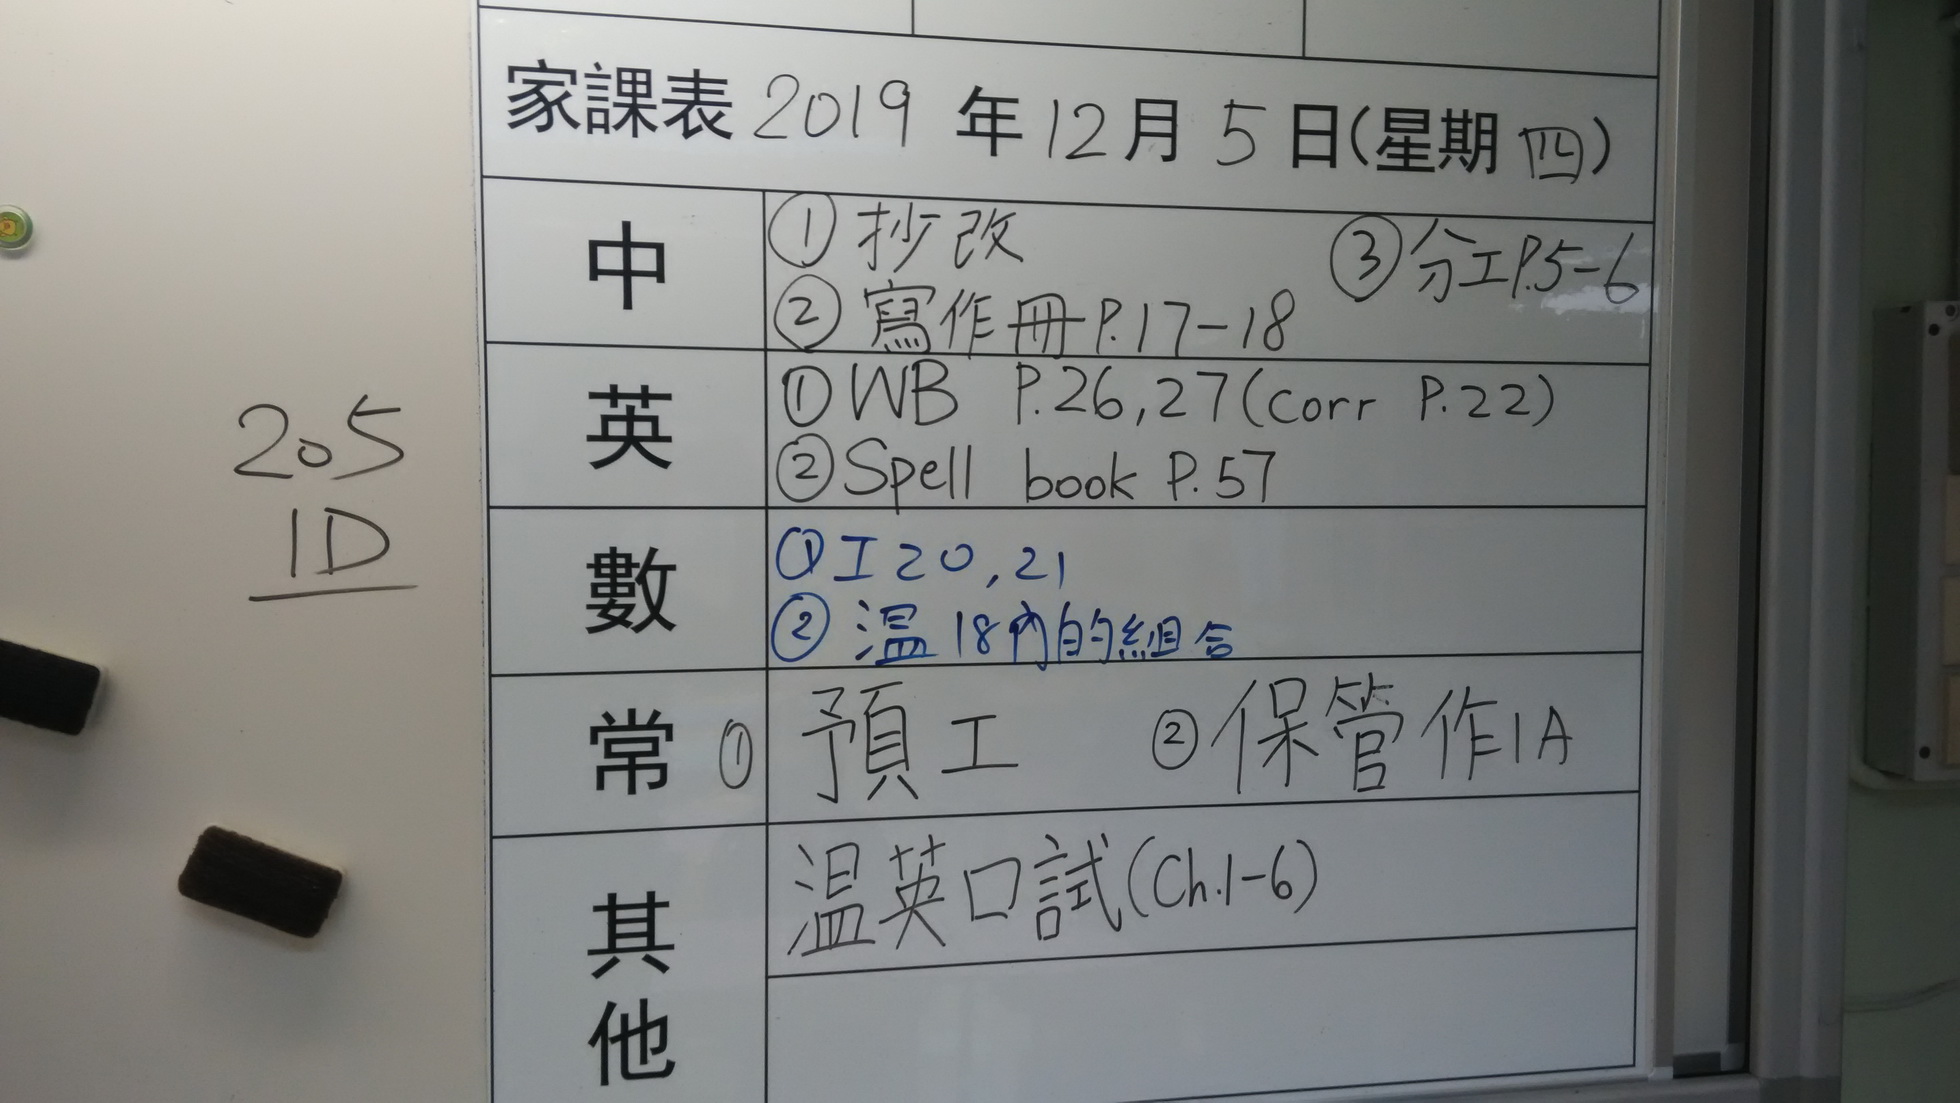 家課表 2019 年 12 月 5 日(星期 四)
中 ① 抄改 ③ 分工P.5-6
② 寫作冊P.17-18
英 ① WB P.26,27(corr P.22)
② Spell book P.57
數 ① 工20,21
② 温18內的組合
常 ① 預工 ② 保管作1A
其他 温英口試(Ch.1-6)
205
1D